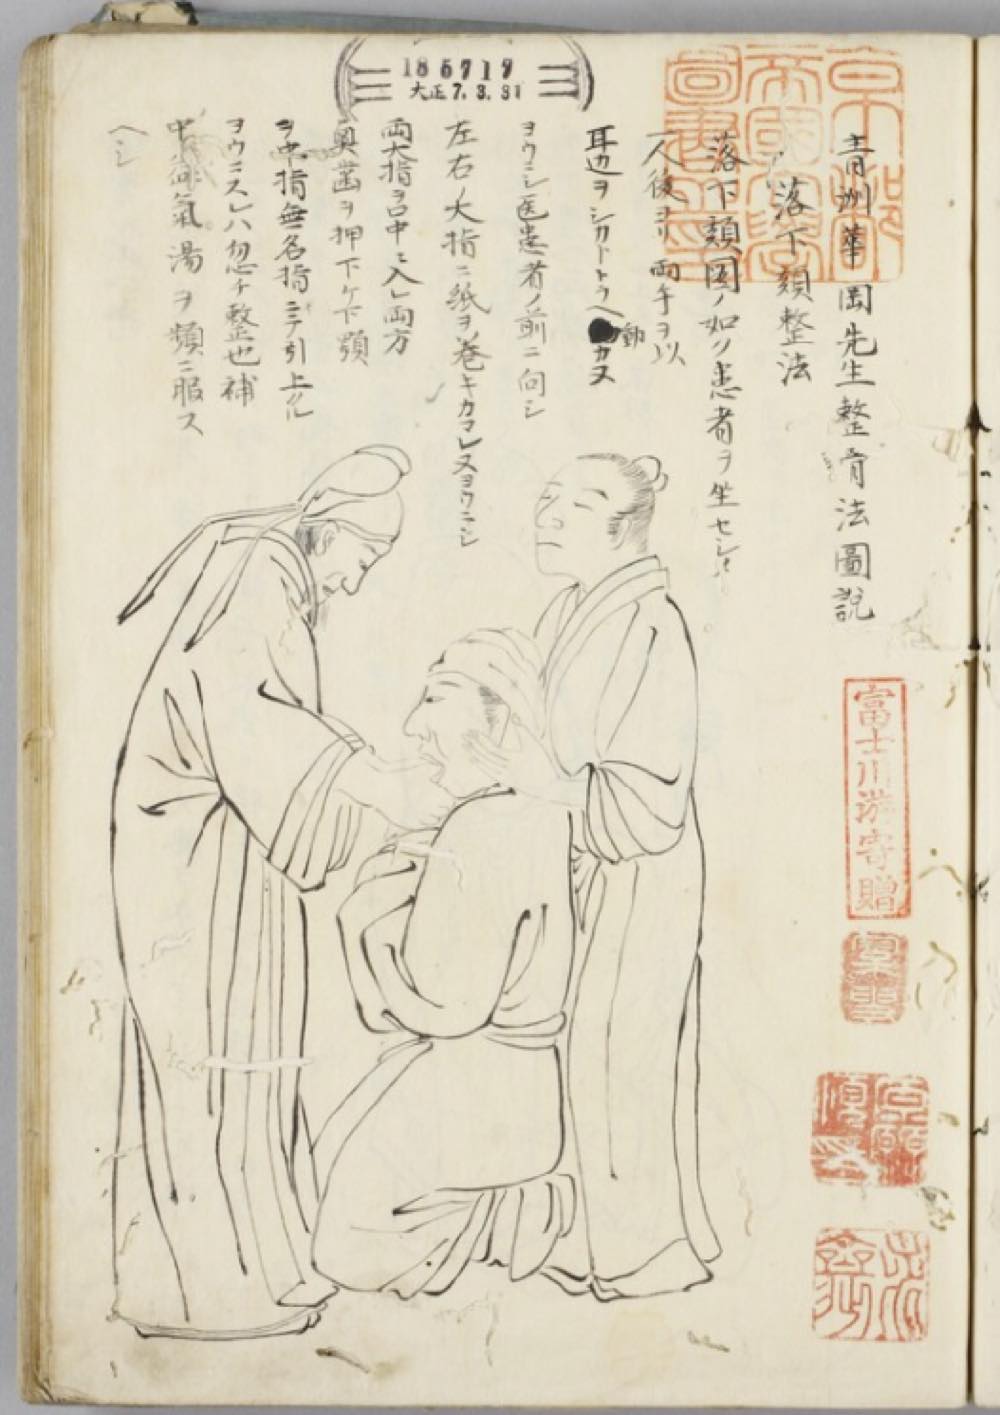 青洲華岡先生整骨法圖説
落下頦整法
落下頦図ノ如ク患者ヲ坐セシメ
人後ヨリ両手ヲ以
耳辺ヲシカトトラヘ動カヌ
ヨウニシ医患者ノ前ニ向シ
左右ノ大指ニ紙ヲ巻キカマレヌヨウニシ
両大指ヲ口中ニ入レ両方
奥歯ヲ押下ケ下顎
ヲ中指無名指ニテ引上クル
ヨウニスレハ忽チ整也補
中益氣湯ヲ頻ニ服ス
ヘシ
186717
大正7.3.31
京都
帝國大學
圖書之印
富士川游寄贈